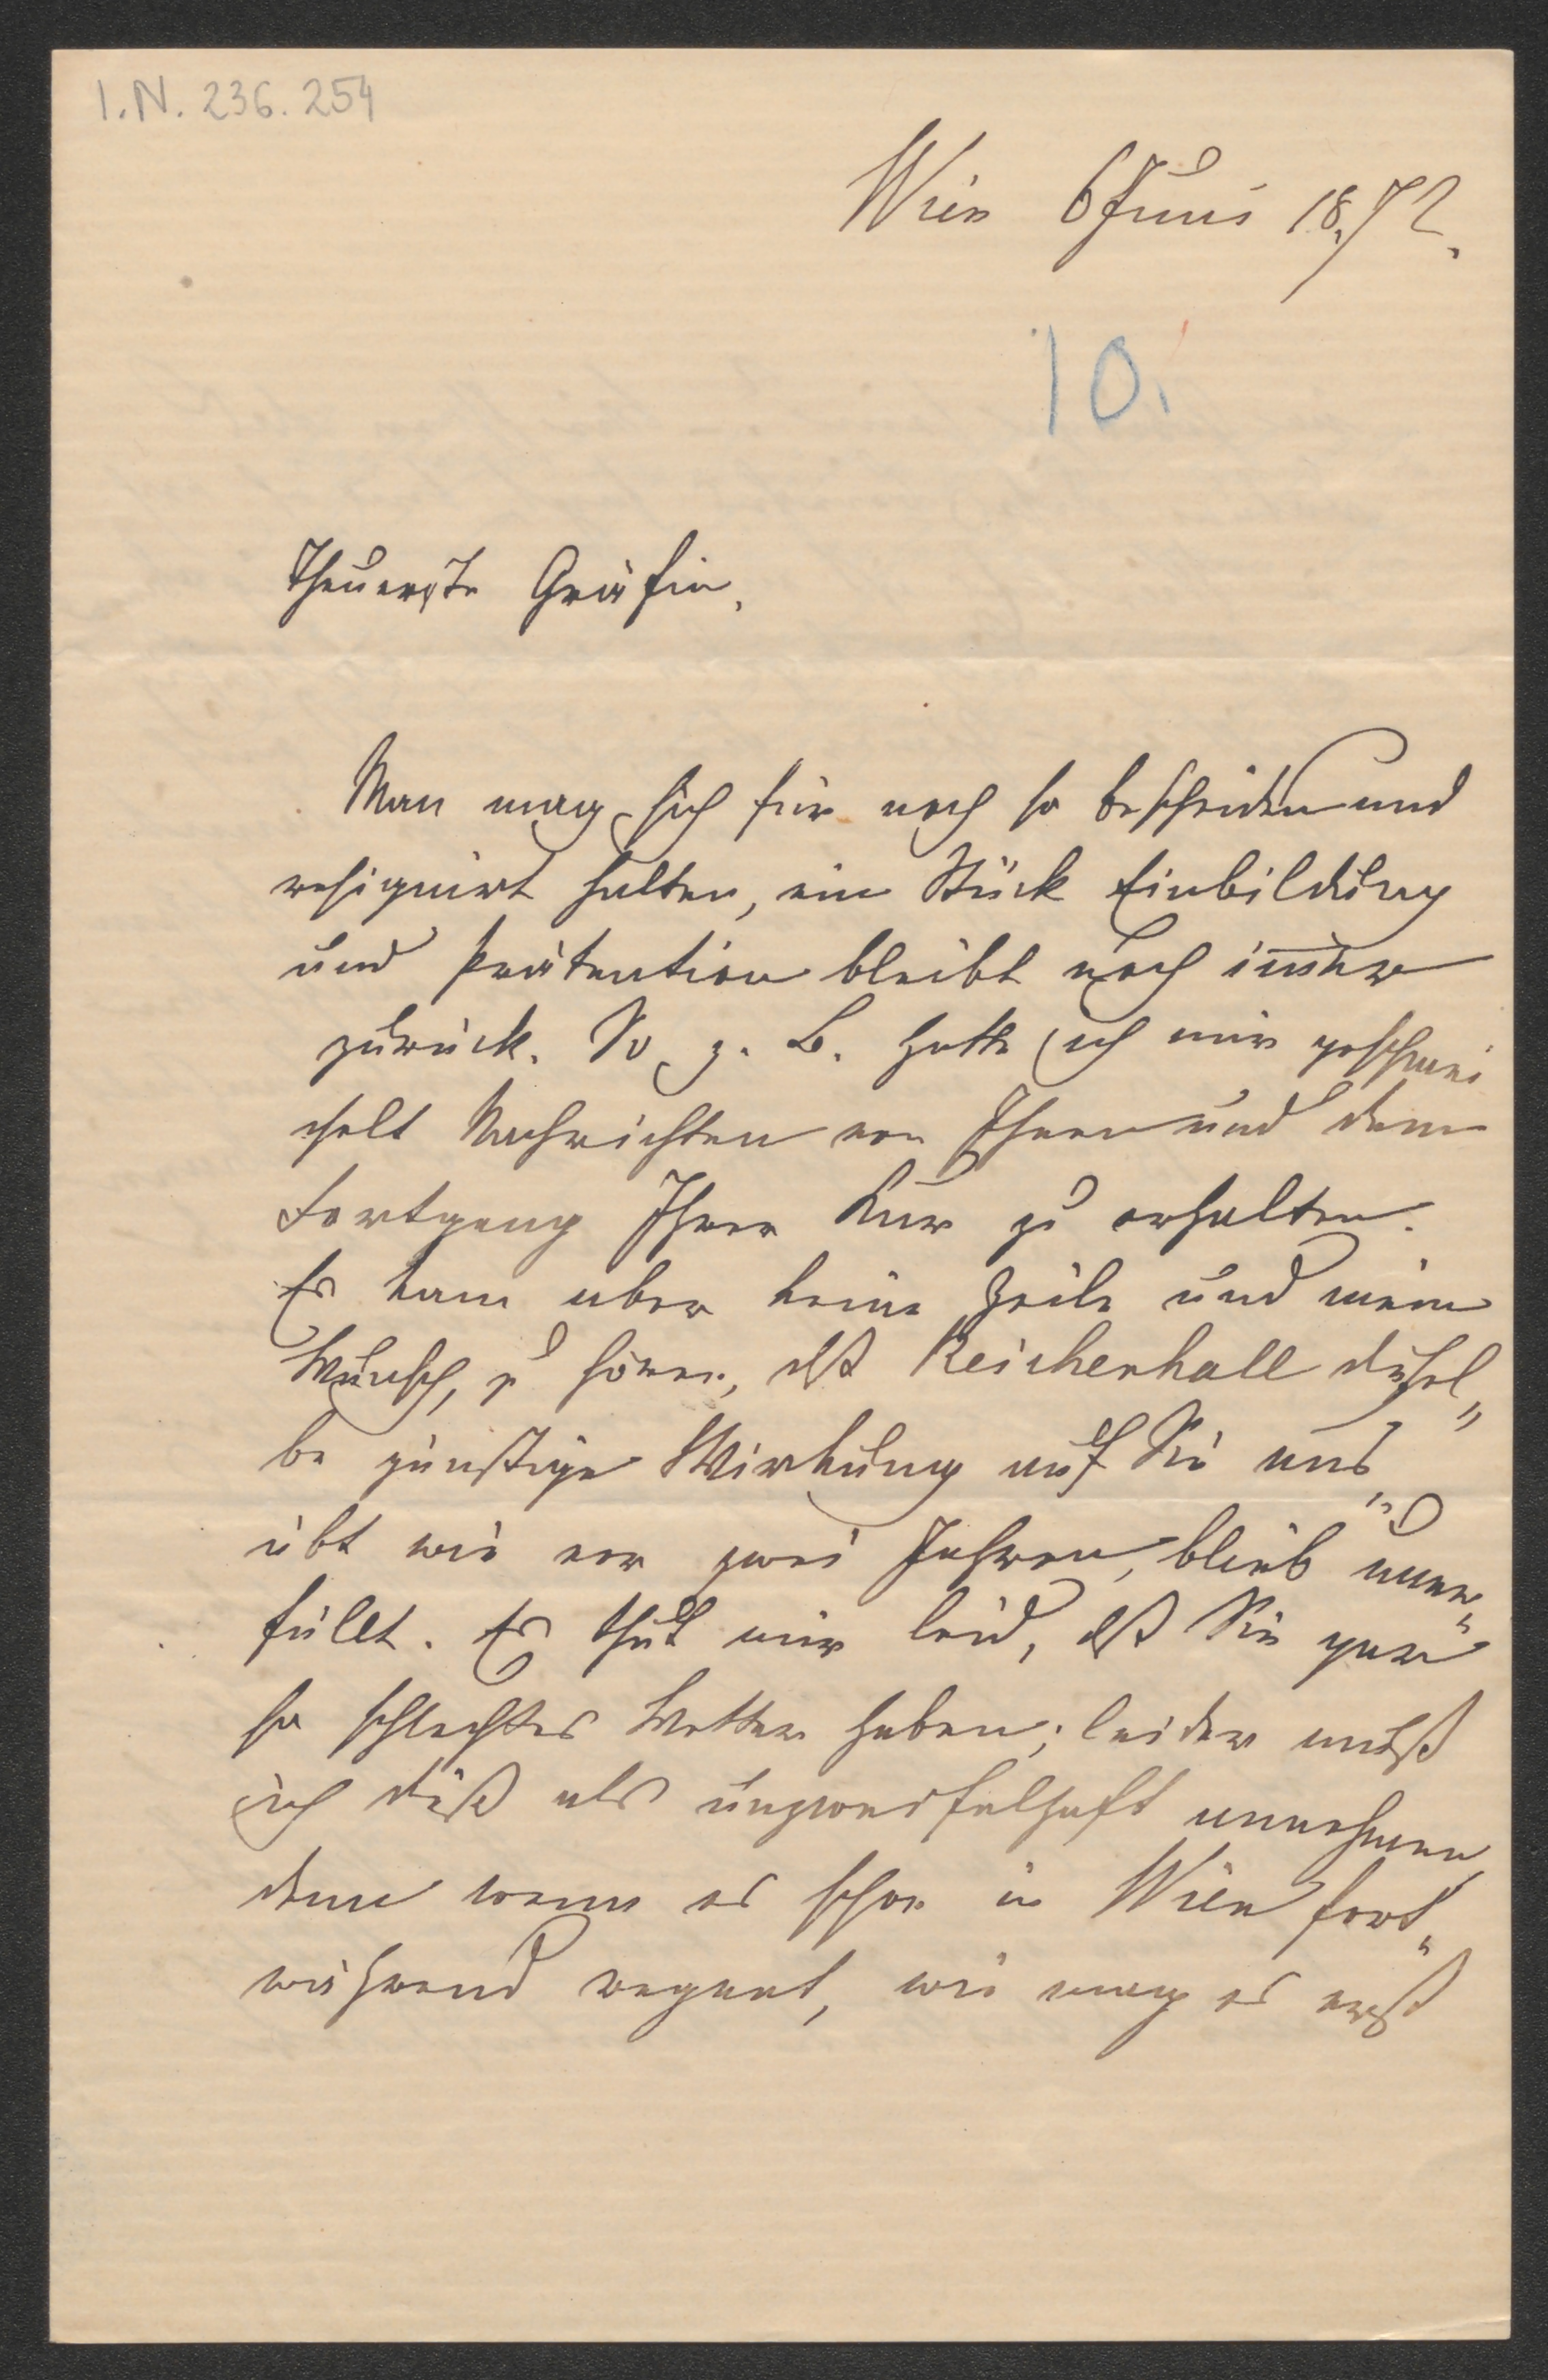 I.N. 236.254
Wien 6 Juni 1872.
10.
Theuerste Gräfin,
Man mag sich für noch so bescheiden und
resignirt halten, ein Stück Einbildung
und Prätention bleibt noch immer
zurück. So z. B. hatte ich mir geschmei
chelt Nachrichten von Ihnen und dem
Fortgang Ihrer Kur zu erhalten.
Es kam aber keine Zeile und mein
Wunsch, zu hören, dß Reichenhall diesel„
be günstige Wirkung auf Sie aus„
übt wie vor zwei Jahren, blieb uner„
füllt. Es thut mir leid, dß Sie gar
so schlechtes Wetter haben; leider muß
ich dieß als unzweifelhaft annehmen,
denn wenn es schon in Wien fort„
während regnet, wie mag es erst